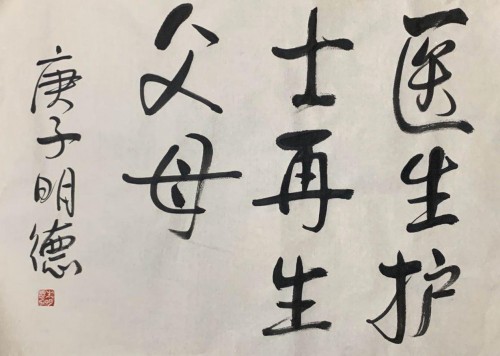 医生护
士再生
父母
庚子明德